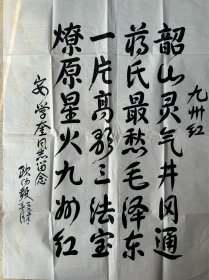 九州红
韶山灵气井冈通
蒋氏最愁毛泽东
一片高歌三法宝
燎原星火九州红
安学奎同志留念